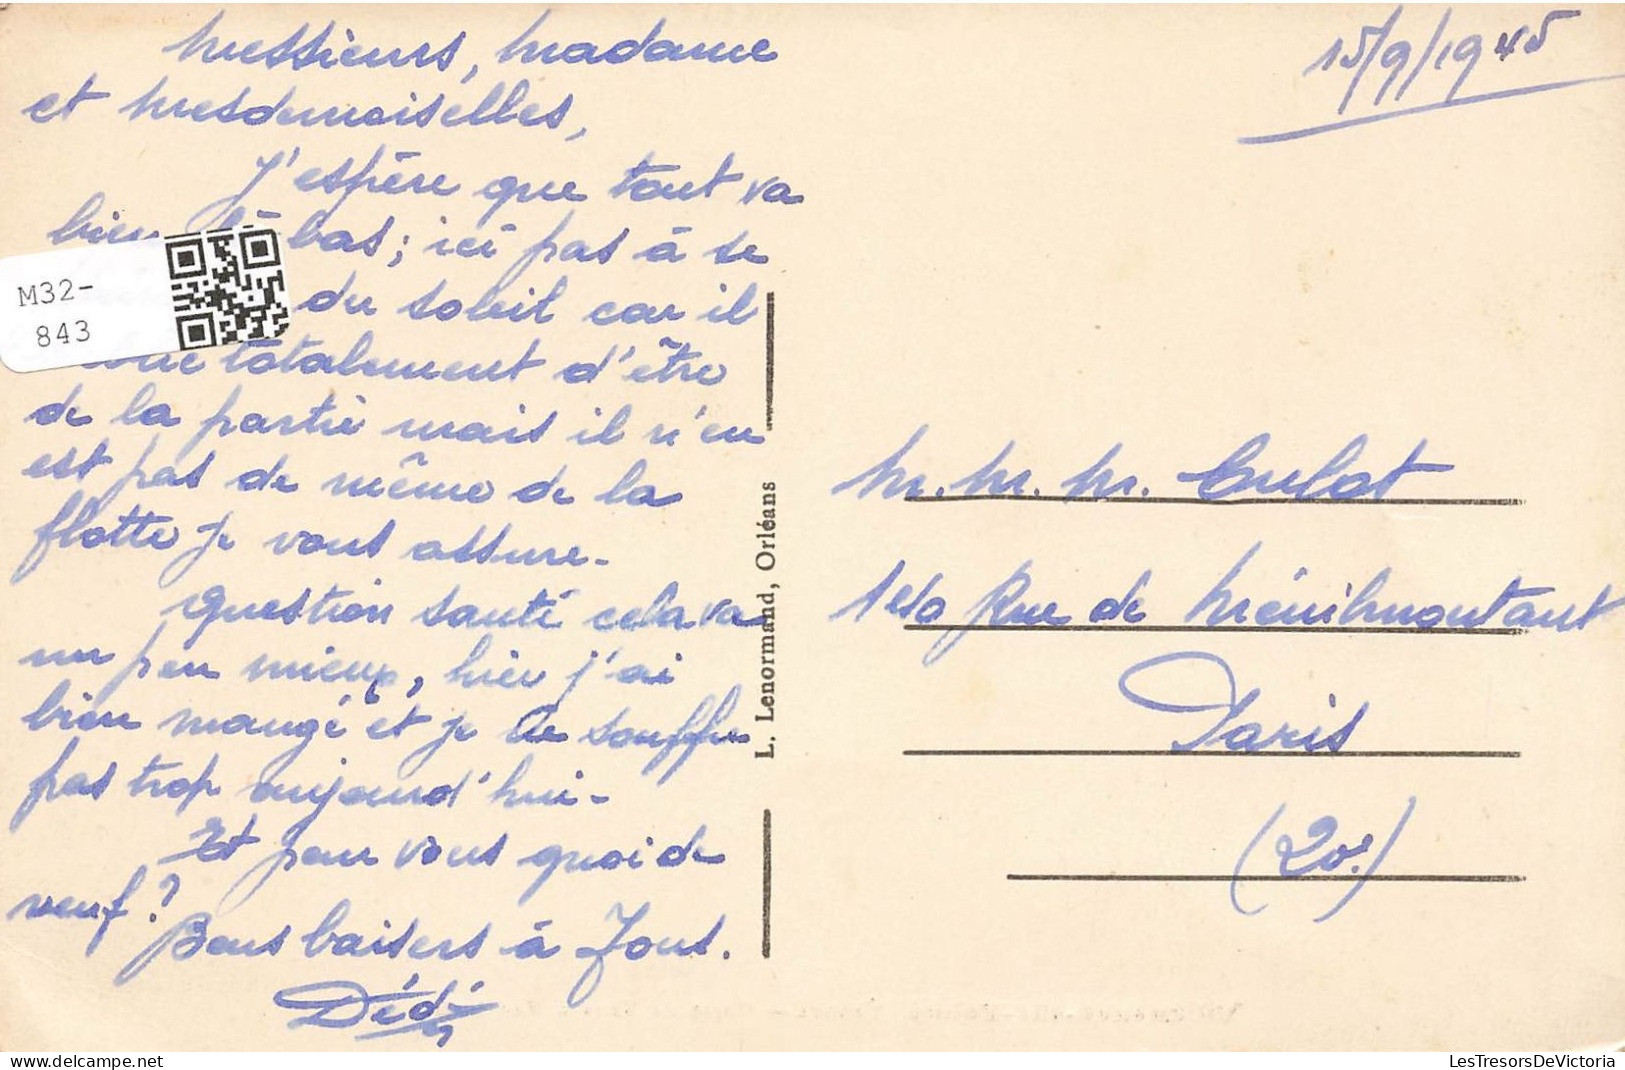 15/9/1945
Messieurs, Madame
et Mesdemoiselles,
J'espère que tout va
bien là bas; ici pas à se
du soleil car il
totalement d'être
de la partie mais il n'en
est pas de même de la
flotte je vous assure.
Question santé cela va
un peu mieux, hier j'ai
bien mangé et je ne souffre
pas trop aujourd'hui.
Et pour vous quoi de
neuf?
Bons baisers à Tous.
Dédé
M32-
843
L. Lenormand, Orléans
M. M. M. Culot
Rue de Ménilmontant
Paris
(20e)
LesTresorsDeVictoria